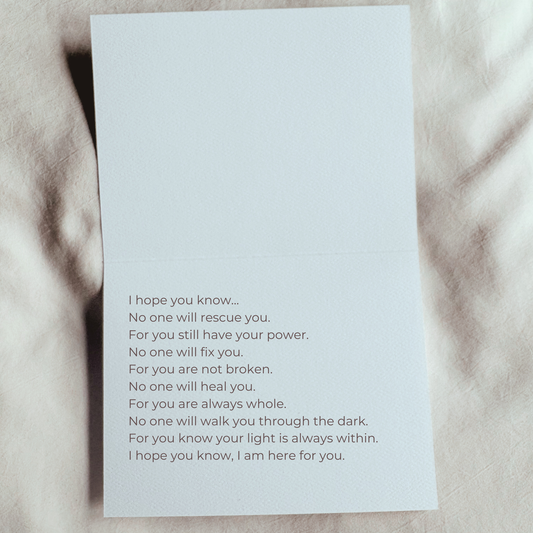 I hope you know...
No one will rescue you.
For you still have your power.
No one will fix you.
For you are not broken.
No one will heal you.
For you are always whole.
No one will walk you through the dark.
For you know your light is always within.
I hope you know, I am here for you.